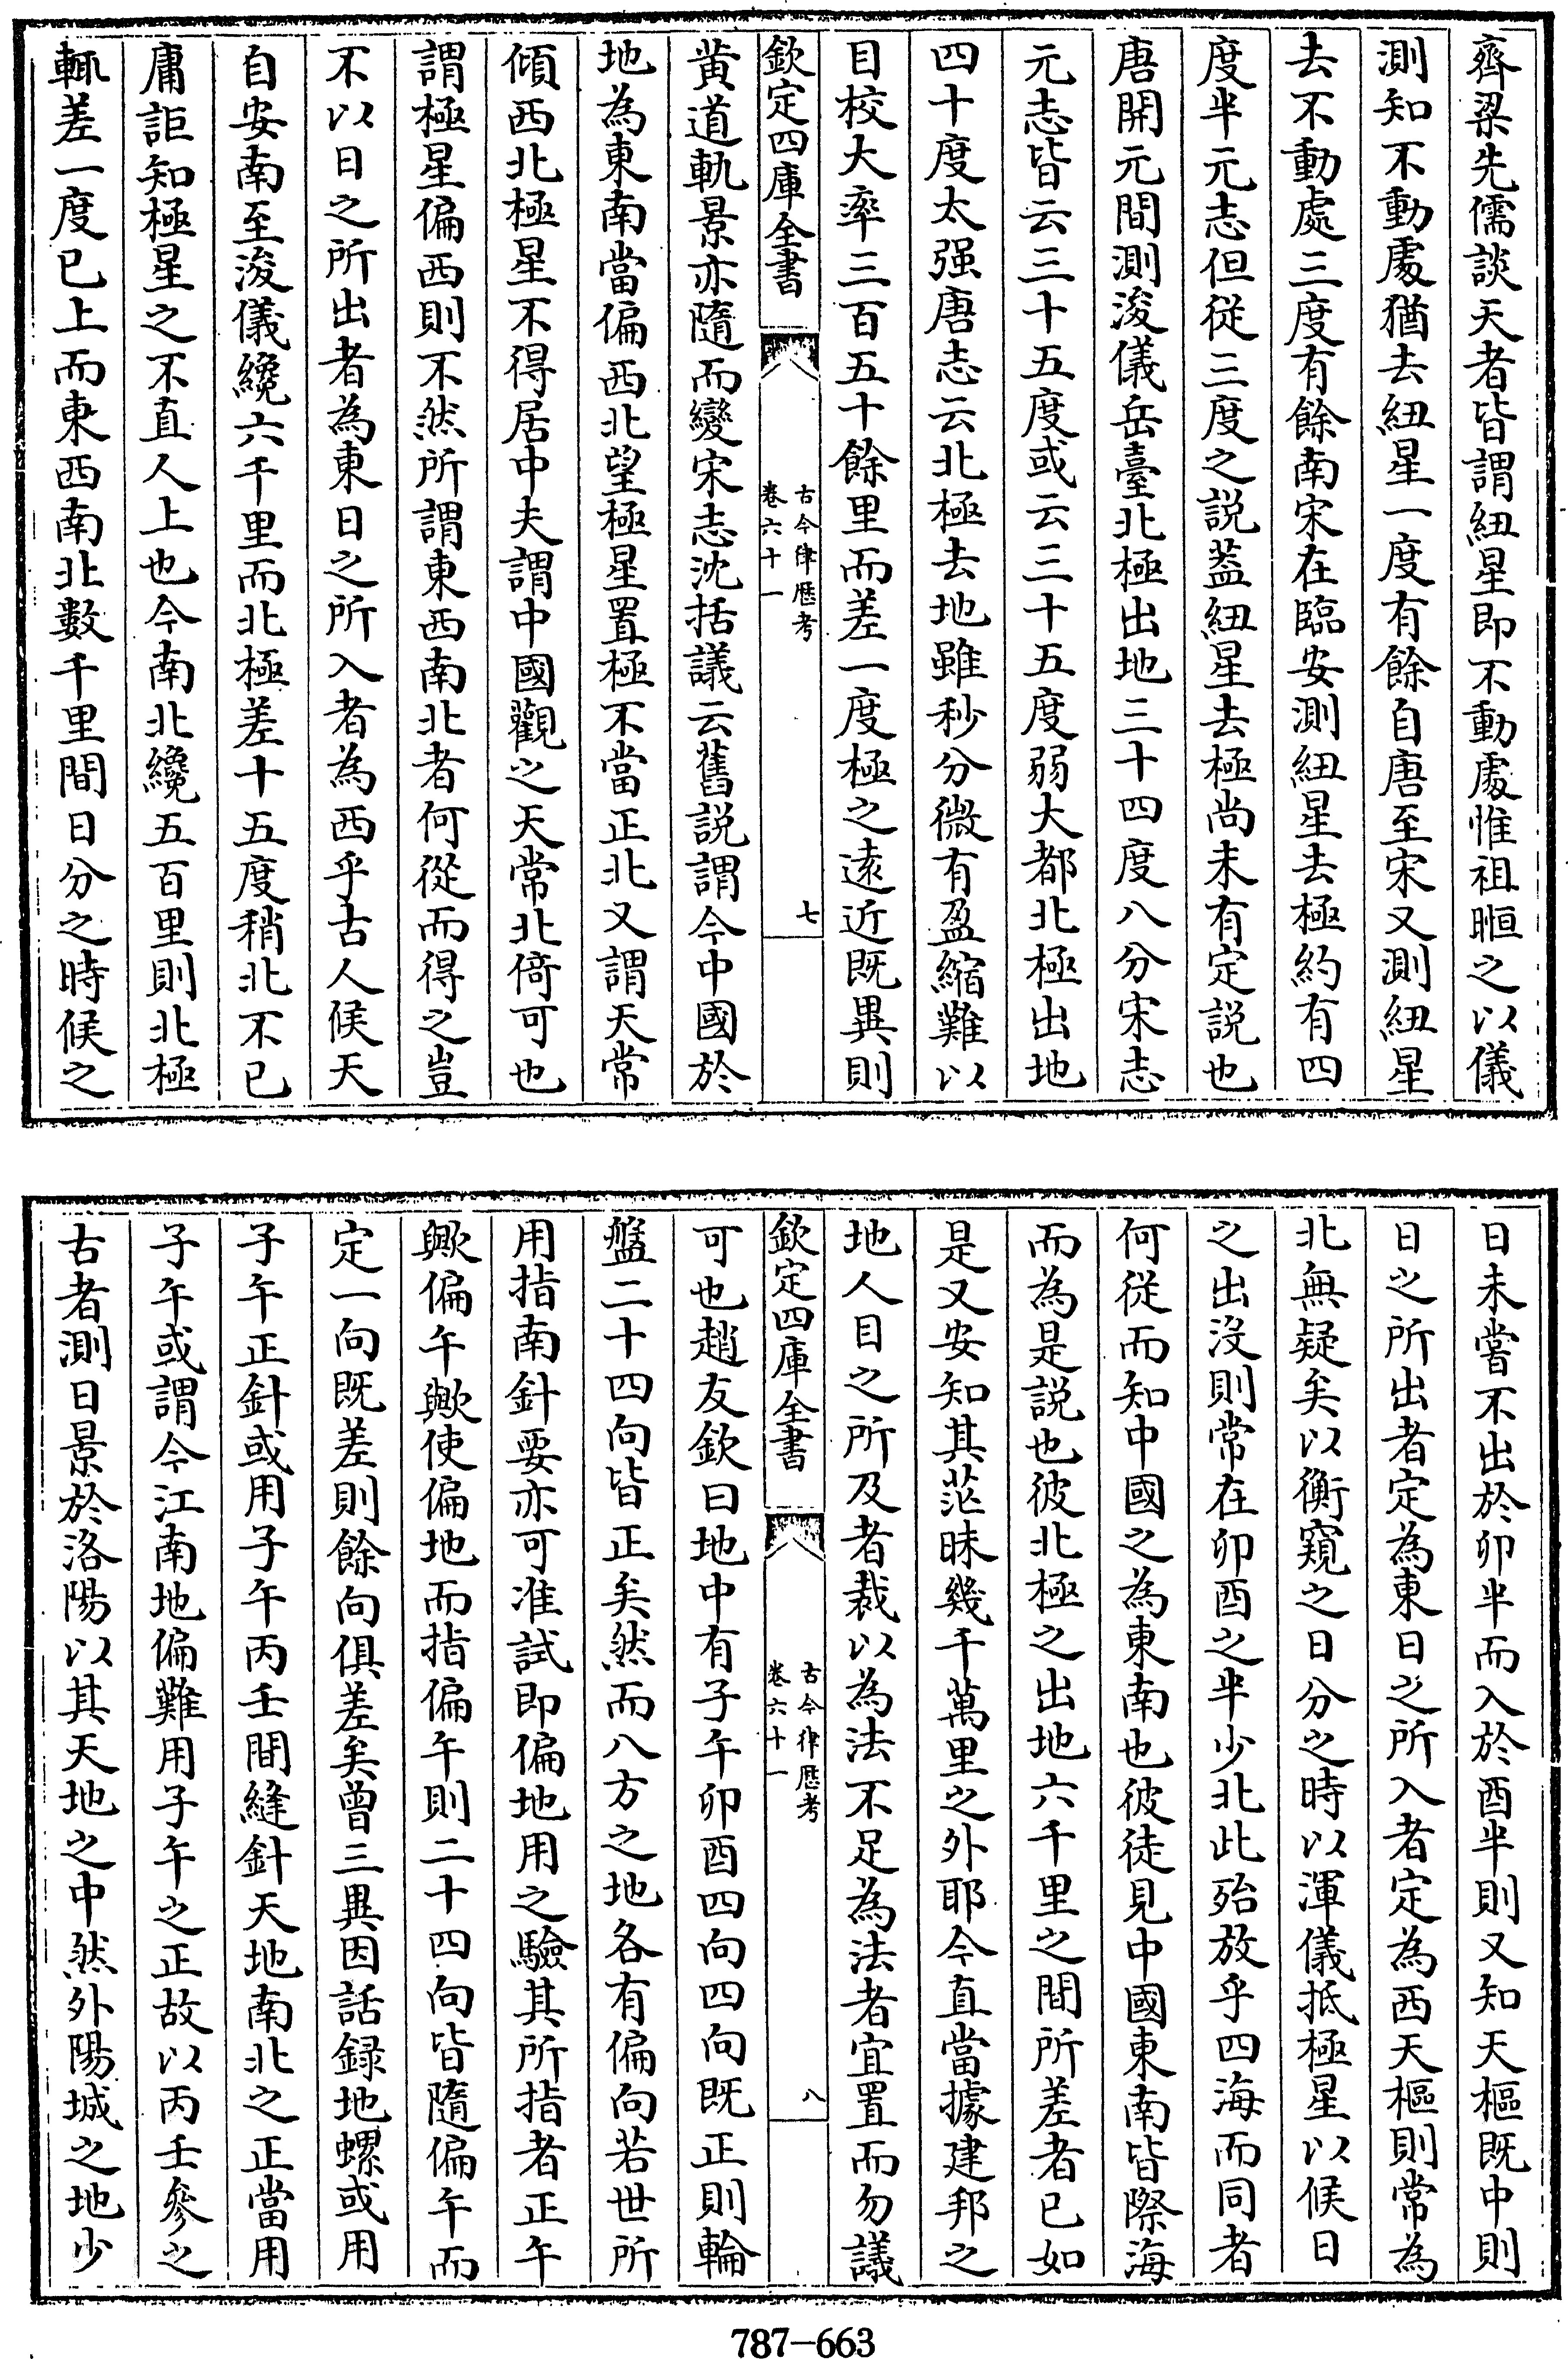 齊梁先儒談天者皆謂紐星即不動處惟祖暅之以儀
測知不動處猶去紐星一度有餘自唐至宋又測紐星
去不動處三度有餘南宋在臨安測紐星去極約有四
度半元志但從三度之説葢紐星去極尚未有定説也
唐開元間測浚儀岳臺北極出地三十四度八分宋志
元志皆云三十五度或云三十五度弱大都北極出地
四十度太强唐志云北極去地雖秒分微有盈縮難以
目校大率三百五十餘里而差一度極之遠近既異則
欽定四庫全書
古今律歷考
卷六十一
七
黄道軌景亦隨而變宋志沈括議云舊説謂今中國於
地為東南當偏西北望極星置極不當正北又謂天常
傾西北極星不得居中夫謂中國觀之天常北倚可也
謂極星偏西則不然所謂東西南北者何從而得之豈
不以日之所出者為東日之所入者為西乎古人候天
自安南至浚儀纔六千里而北極差十五度稍北不已
庸詎知極星之不直人上也今南北纔五百里則北極
輒差一度已上而東西南北數千里間日分之時候之
日未嘗不出於卯半而入於酉半則又知天樞既中則
日之所出者定為東日之所入者定為西天樞則常為
北無疑矣以衡窺之日分之時以渾儀抵極星以候日
之出沒則常在卯酉之半少北此殆放乎四海而同者
何從而知中國之為東南也彼徒見中國東南皆際海
而為是説也彼北極之出地六千里之間所差者已如
是又安知其茫昧幾千萬里之外耶今直當據建邦之
地人目之所及者裁以為法不足為法者宜置而勿議
欽定四庫全書
古今律歷考
卷六十一
八
可也趙友欽曰地中有子午卯酉四向四向既正則輪
盤二十四向皆正矣然而八方之地各有偏向若世所
用指南針要亦可准試即偏地用之驗其所指者正午
歟偏午歟使偏地而指偏午則二十四向皆隨偏午而
定一向既差則餘向俱差矣曾三異因話録地螺或用
子午正針或用子午丙壬間縫針天地南北之正當用
子午或謂今江南地偏難用子午之正故以丙壬參之
古者測日景於洛陽以其天地之中然外陽城之地少
787-663